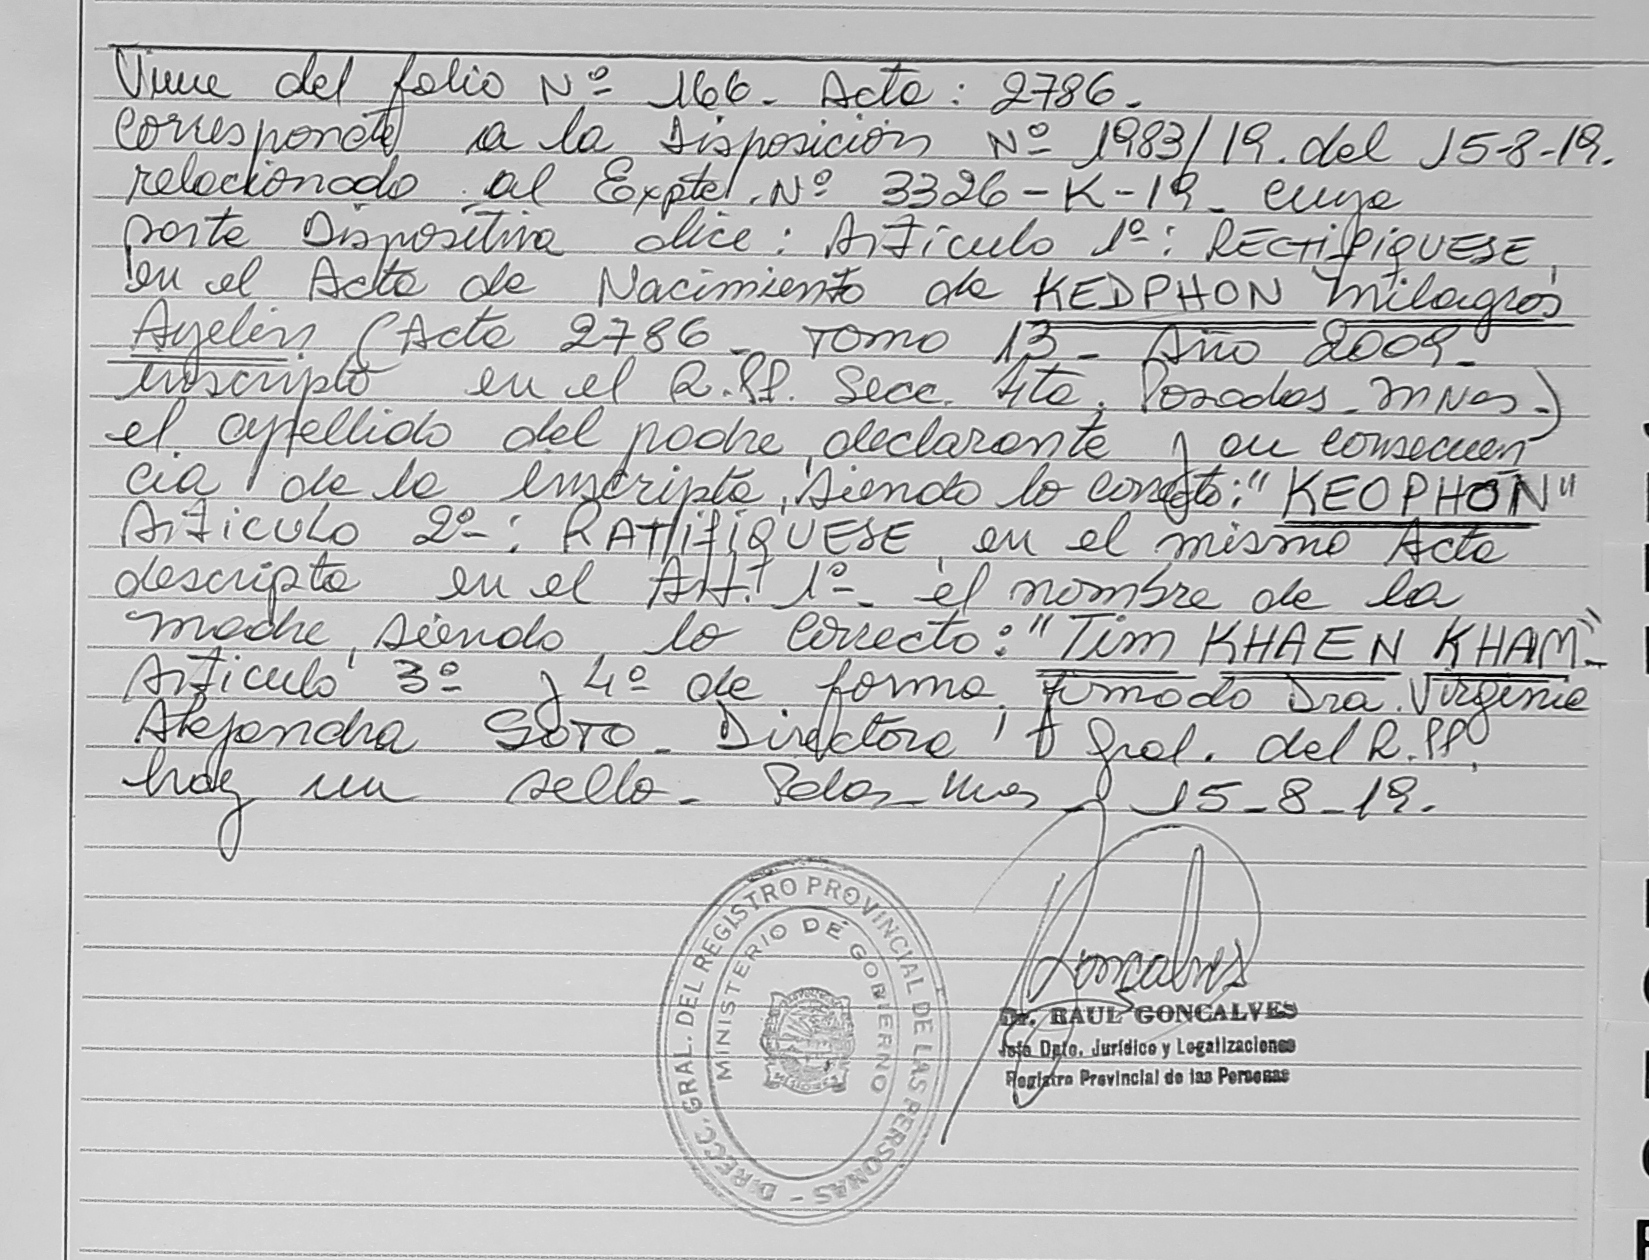 Viene del folio Nº 166. Acta: 2786.
Corresponde a la Disposición Nº 1983/19. del 15-8-19.
relacionado al Expte. Nº 3326-K-19. cuya
parte Dispositiva dice: Artículo 1º: RECTIFIQUESE,
en el Acta de Nacimiento de KEDPHON Milagros
Ayelén (Acta 2786 - Tomo 13 - Año 2009 -
inscripto en el R.PP. Secc. 4ta. Posadas. Mnes.)
el apellido del padre declarante y en consecuen
cia de la inscripta, siendo lo correcto: "KEOPHON"
Artículo 2º: RATIFIQUESE en el mismo Acta
descripta en el Art. 1º el nombre de la
madre, siendo lo correcto: "Tim KHAEN KHAM"-
Artículo 3º y 4º de forma. firmado Dra. Virginia
Alejandra SOTO - Directora Gral. del R.PP.
hay un sello - Pdas - Mnes 15-8-19.
DIRECC. GRAL. DEL REGISTRO PROVINCIAL DE LAS PERSONAS -
MINISTERIO DE GOBIERNO
MISIONES
Goncalves
Dr. RAUL GONCALVES
Jefe Dpto. Jurídico y Legalizaciones
Registro Provincial de las Personas